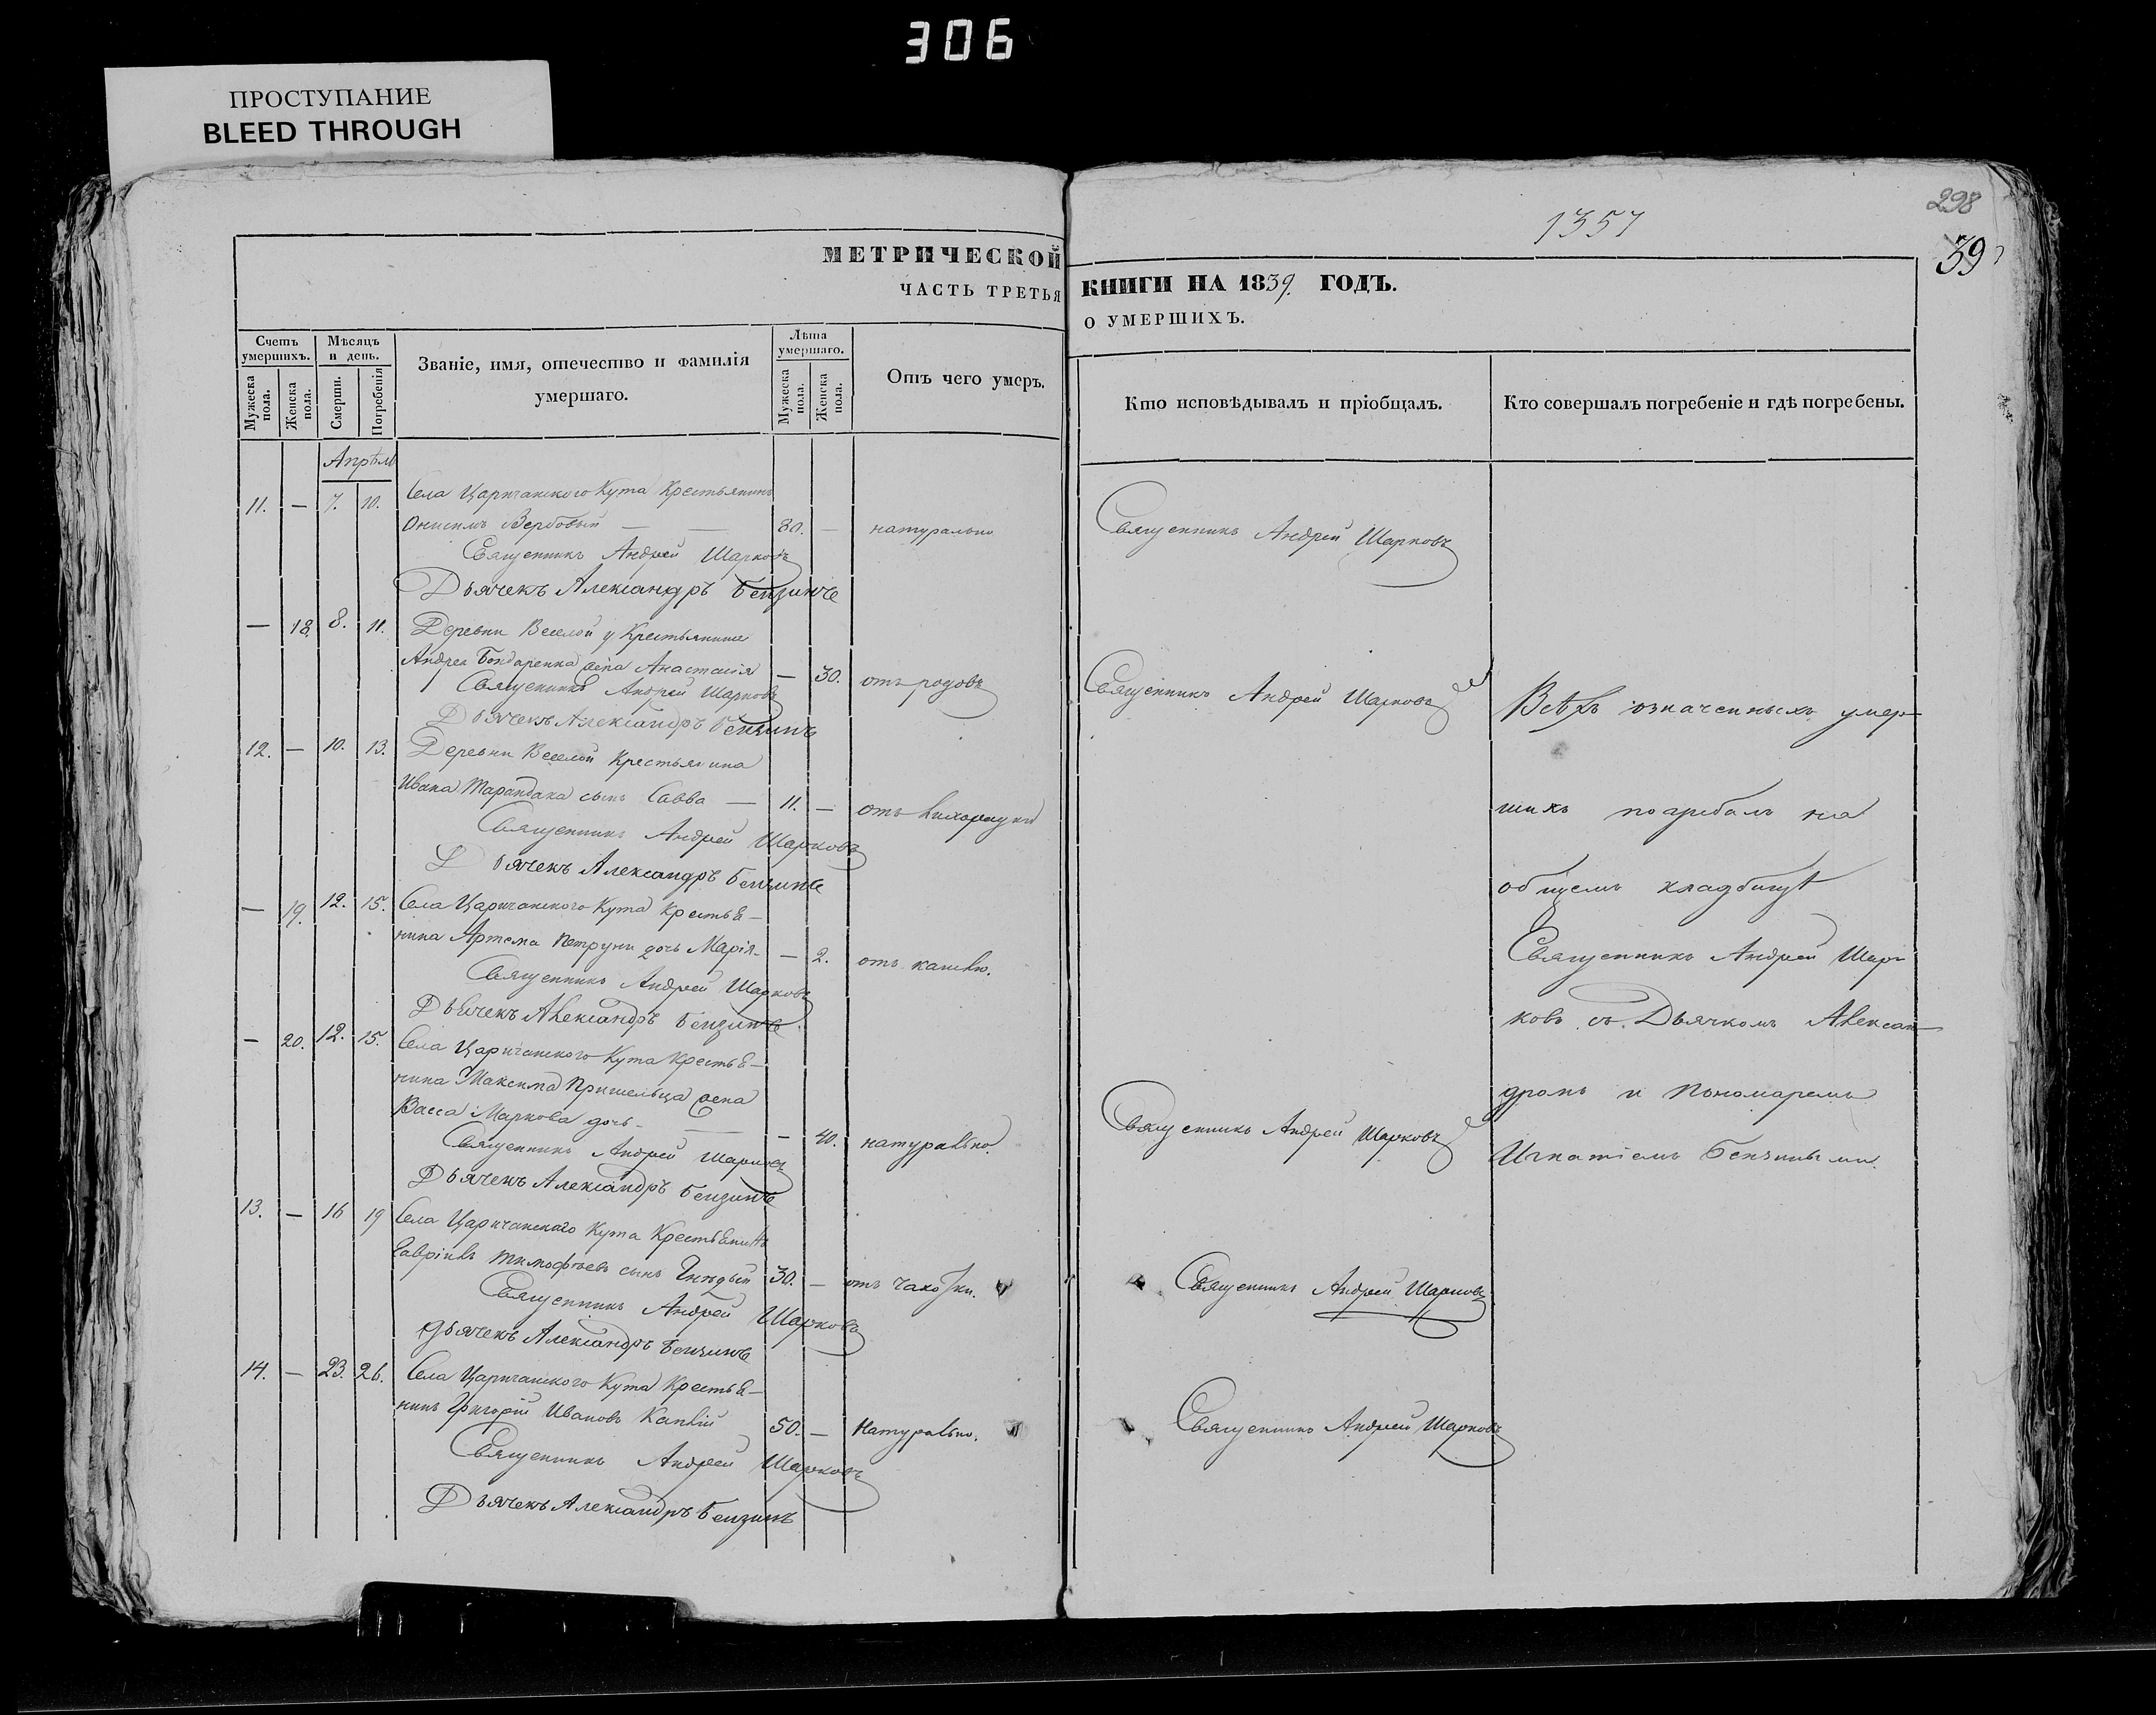 306
ПРОСТУПАНИЕ
BLEED THROUGH
298
1357
39
МЕТРИЧЕСКОЙ
ЧАСТЬ ТРЕТЬЯ
КНИГИ НА 1839. ГОДЪ.
О УМЕРШИХЪ.
Счетъ умершихъ.
Мужеска пола.
Женска пола.
Мѣсяцъ и день.
Смерти.
Погребенія
Званіе, имя, отечество и фамилія
умершаго.
Лѣта умершаго.
Мужеска пола.
Женска пола.
Отъ чего умеръ.
Кто исповѣдывалъ и пріобщалъ.
Кто совершалъ погребеніе и гдѣ погребены.
Апрѣль
11. — 7. 10. Села Царичанского Кута Крестьянинъ
Онисимъ Вербовый — — 80. — натурально
Священникъ Андрей Шарковъ
Священникъ Андрей Шарковъ
Дьячекъ Александръ Бензинъ
— 18. 8. 11. Деревни Веселой у Крестьянина
Андрея Бондаренка жена Анастасія — 30. отъ родовъ
Священникъ Андрей Шарковъ
Священникъ Андрей Шарковъ
Дьячекъ Александръ Бензинъ
12. — 10. 13. Деревни Веселой Крестьянина
Ивана сынъ Савва — 11. — отъ лихорадки
Священникъ Андрей Шарковъ
Дьячекъ Александръ Бензинъ
— 19. 12. 15. Села Царичанского Кута Крестья—
нина Артема Петруни дочь Марія — 2. отъ кашлю.
Священникъ Андрей Шарковъ
Дьячекъ Александръ Бензинъ
— 20. 12. 15. Села Царичанского Кута Крестья—
нина Максима Пришельца жена
Васса Маркова дочь — — 40. натурально.
Священникъ Андрей Шарковъ
Священникъ Андрей Шарковъ
Дьячекъ Александръ Бензинъ
13. — 16 19 Села Царичанского Кута Крестьянинъ
Гавріилъ Тимофѣевъ сынъ 30. — отъ чахотки.
Священникъ Андрей Шарковъ
Священникъ Андрей Шарковъ
Дьячекъ Александръ Бензинъ
14. — 23. 26. Села Царичанского Кута Крестья—
нинъ Григорій Ивановъ 50. — Натурально.
Священникъ Андрей Шарковъ
Священникъ Андрей Шарковъ
Дьячекъ Александръ Бензинъ
Всѣхъ означенныхъ умер—
шихъ погребалъ на
общемъ кладбищѣ
Священникъ Андрей Шар—
ковъ съ Дьячкомъ Алексан—
дромъ и Пономаремъ
Игнатіемъ Бензиными.